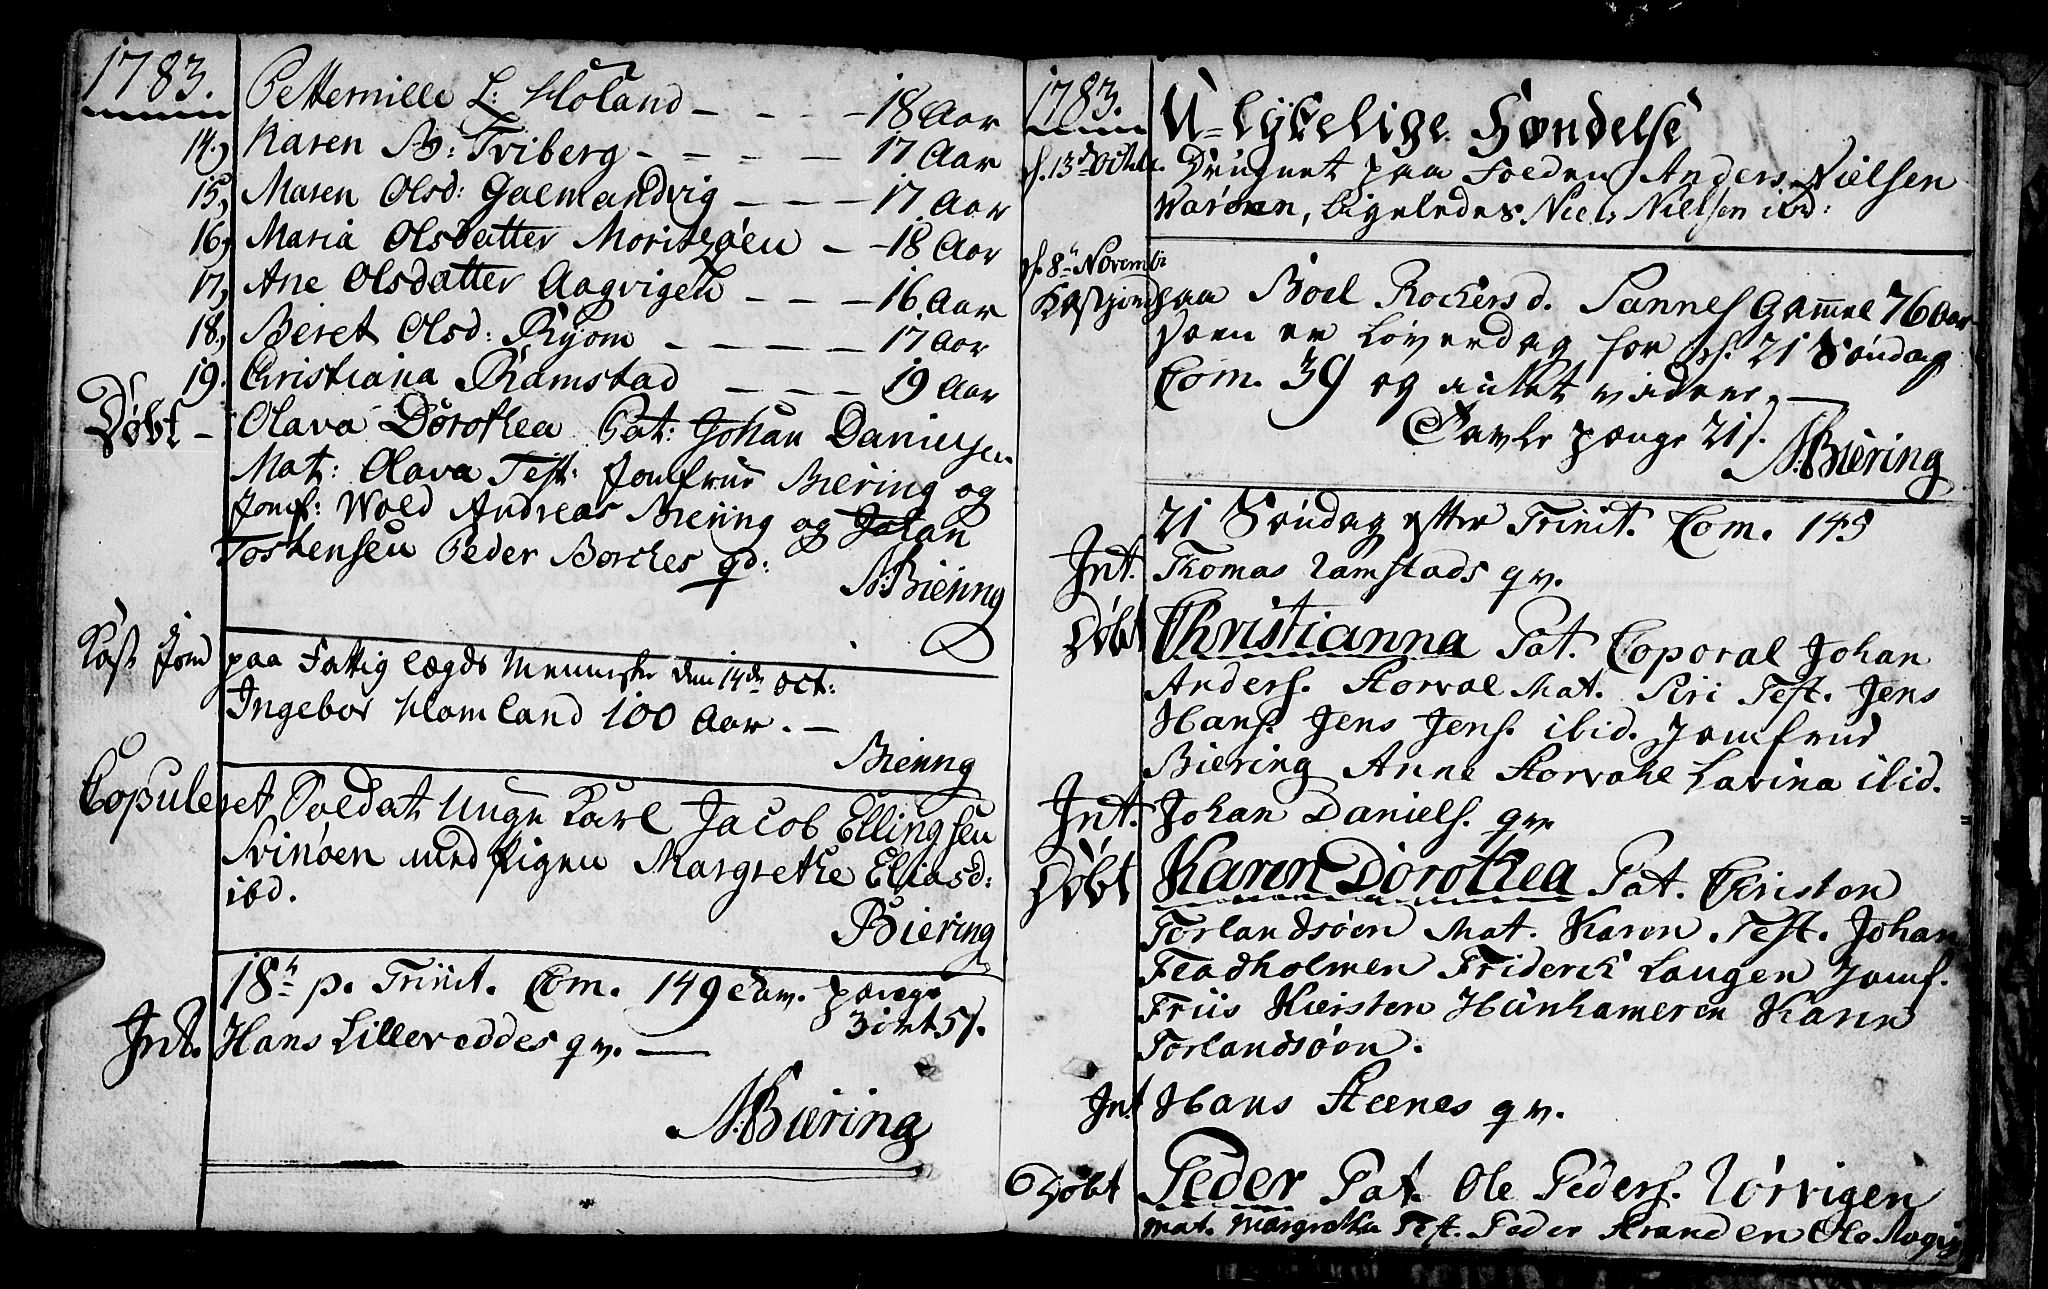 1783.
Petternille L: Høland — — — 18 Aar
14, Karen A: Friberg — — — — 17 Aar
15, Maren Olsd: Galmandvig — — — 17 Aar
16, Maria Olsdatter Moritzøen — — 18 Aar
17, Ane Olsdatter Aagvigen — — — 16 Aar
18, Beret Olsd: Ryom — — — — 17 Aar
19. Christiana Ramstad — — — 19 Aar
Døbt — Olava Dorothea Pat: Johan Danielsen
Mat: Olava Test: Jomfrue Biering og
Jomf: Wold Andreas Biering og Johan
Tostensen Peder Borches gd:
N: Biering
Kast Jord paa Fattig lægds Mennisker den 14de Oct:
Ingebor Hamland 100 Aar. —
Biering
Copuleret Soldat Unge Karl Jacob Ellingsen
Svinøen med Pigen Margrethe Eliasd:
ibd.
Biering
18de p. Trinit. Com. 149 penge
3 ort 5s.
Int. Hans Lilleveddes q v. —
N: Biering
1783.
U-lykelige Hændelse
d. 13de Octobr. Drugnet paa Søeden Anders Nielsen
Warøen, ligeledes Niels Nielsen ibd:
d. 8de Novembr
Kast Jord paa Boel Rochersd. Sannes Gammel 76 Aar
som er Løverdag for d. 21 Søndag
Com. 39 og intet videre. —
Tavle penge 21s.
N: Biering
21 Søndag efter Trinit. Com. 145
Int. Thomas Ramstads q v.
Døbt Christianna Pat. Coporal Johan
Anders. Storval Mat. Siri Test. Jens
Hans. Jens Jens. ibid. Jomfrue
Biering Anne Storvahl Lavina ibid.
Int. Johan Daniels. q v.
Døbt Karen Dorothea Pat. Christen
Torlandsøen Mat. Karen. Test. Johan
Fladholmen Friderik Laugen Jomf.
Friis Kiersten Hunhameren Karen
Torlandsøen.
Int Hans Steenes q v.
Døbt Peder Pat. Ole Peders. Wørvigen
Mat. Margretha Test. Peder Stranden Ole